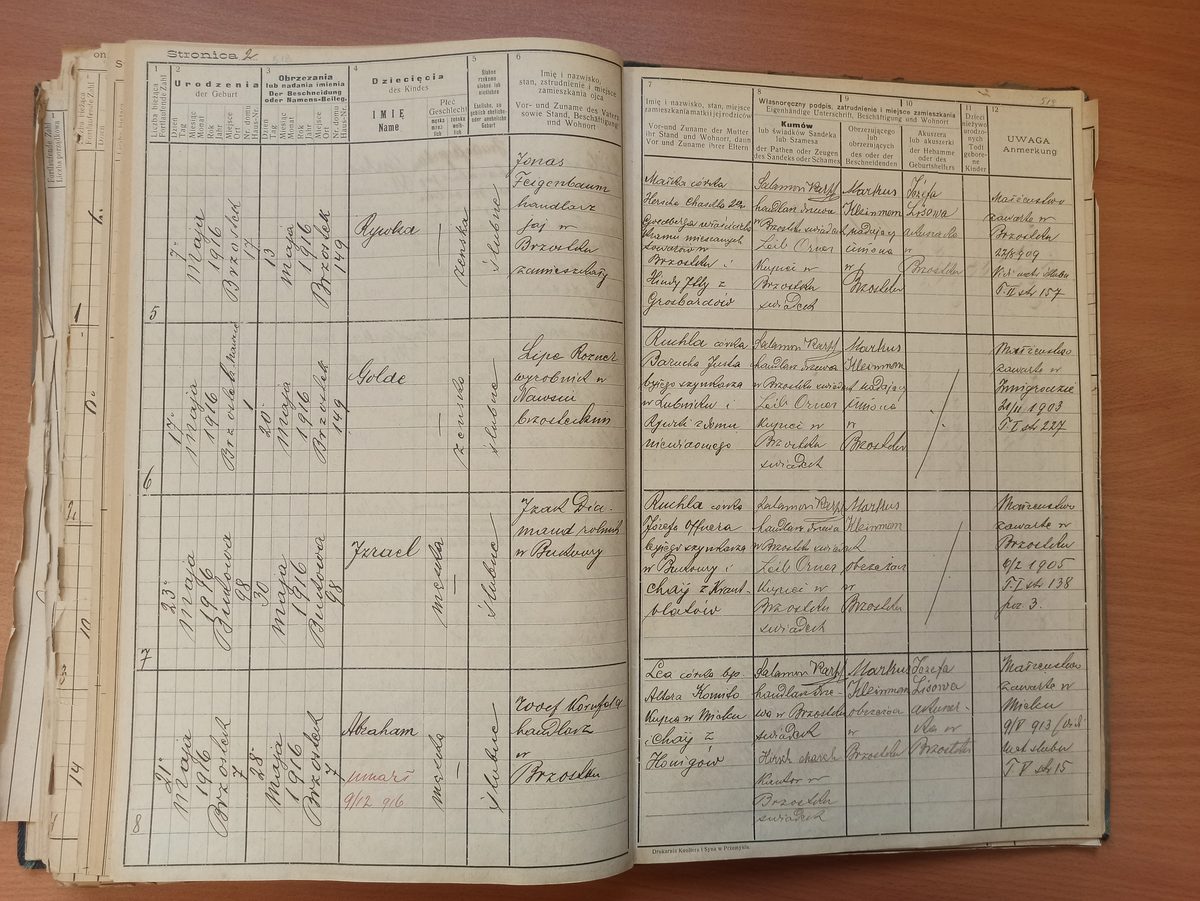 Stronica 2
1
Liczba bieżąca
Fortlaufende Zahl
2
Urodzenia
der Geburt
Dzień
Tag
Miesiąc
Monat
Rok
Jahr
Miejsce
Ort
Nr. domu
Haus-Nr.
3
Obrzezania
lub nadania imienia
Der Beschneidung
oder Namens-Beileg.
Dzień
Tag
Miesiąc
Monat
Rok
Jahr
Miejsce
Ort
Nr. domu
Haus-Nr.
4
Dziecięcia
des Kindes
IMIĘ
Name
Płeć
Geschlecht
5
6
Imię i nazwisko,
stan, zatrudnienie i miejsce
zamieszkania ojca
Vor- und Zuname des Vaters
sowie Stand, Beschäftigung
und Wohnort
7
Imię i nazwisko, stan, miejsce
zamieszkania matki i jej rodziców
Vor-und Zuname der Mutter
ihr Stand und Wohnort, dann
Vor und Zuname ihrer Eltern
8
9
10
Własnoręczny podpis, zatrudnienie i miejsce zamieszkania
Eigenhändige Unterschrift, Beschäftigung und Wohnort
Kumów
lub świadków Sandeka
lub Szamesa
der Pathen oder Zeugen
des Sandeks oder Schames
Obrzezującego
lub
obrzezujących
des oder der
Beschneidenden
Akuszera
lub akuszerki
der Hebamme
oder des
Geburtshelfers
11
Dzieci
nieżywo
urodzo-
nych
Todt
gebore-
ne
Kinder
12
UWAGA
Anmerkung
519
5
7
maja
1916
Brzostek
17
13
maja
1916
Brzostek
149
Rywka
żeńska
ślubne
Jonas
Feigenbaum
handlarz
jaj w
Brzostku
zamieszkały
Malka córka
Goldberga właściciela
towarów w
Brzostku i
Hindy Itty z
Grosbardów
Salamon Karpf
handlarz drzewa
w Brzostku świadek
Leib Orner
Kupiec w
Brzostku
świadek
Markus
Kleinmon
nadający
imiona
w
Brzostku
Józefa
Lisowa
akuszerka
w
Brzostku
Małżeństwo
zawarte w
Brzostku
22/8 909
T. II str 157
6
17
maja
1916
1
20
maja
1916
Brzostek
149
Golde
—
żeńska
ślubne
Lipe Rozner
wyrobnik w
Nawsiu
brzosteckim
Ruchla córka
Barucha Justa
byłego szynkarza
w Lubnicku i
Rywki z domu
niewiadomego
Salamon Karpf
handlarz drzewa
w Brzostku świadek
Leib Orner
Kupiec w
Brzostku
świadek
Markus
Kleinmon
nadający
imiona
w
Brzostku
Małżeństwo
zawarte w
Żmigrodzie
21/11 1903
T I str 227
7
23
maja
1916
Bukowa
98
30
maja
1916
Bukowa
98
Izrael
męska
—
ślubne
Izak Dia-
mand rolnik
w Bukowy
Ruchla córka
Józefa Offnera
byłego szynkarza
w Bukowy i
Chaji z Kraut-
blatów
Salamon Karpf
handlarz drzewa
w Brzostku świadek
Leib Orner
Kupiec w
Brzostku
świadek
Markus
Kleinmon
obrzezan
w
Brzostku
Małżeństwo
zawarte w
Brzostku
4/2 1905
T. I str 138
poz 3.
8
21
maja
1916
Brzostek
7
28
maja
1916
Brzostek
7
Abraham
umarł
9/12 916
męska
—
ślubne
Józef Kornfeld
handlarz
w
Brzostku
Lea córka bp.
Altera Komito
Kupca w Mielcu
i Chaji z
Honigów
Salamon Karpf
handlarz drze-
wa w Brzostku
świadek
Kantor w
Brzostku
świadek
Markus
Kleinmon
obrzezan
w
Brzostku
Józefa
Lisowa
akuszer-
ka w
Brzostku
Małżeństwo
zawarte w
Mielcu
9/V 913
T V str 15
Drukarnia Knollera i Syna w Przemyślu.